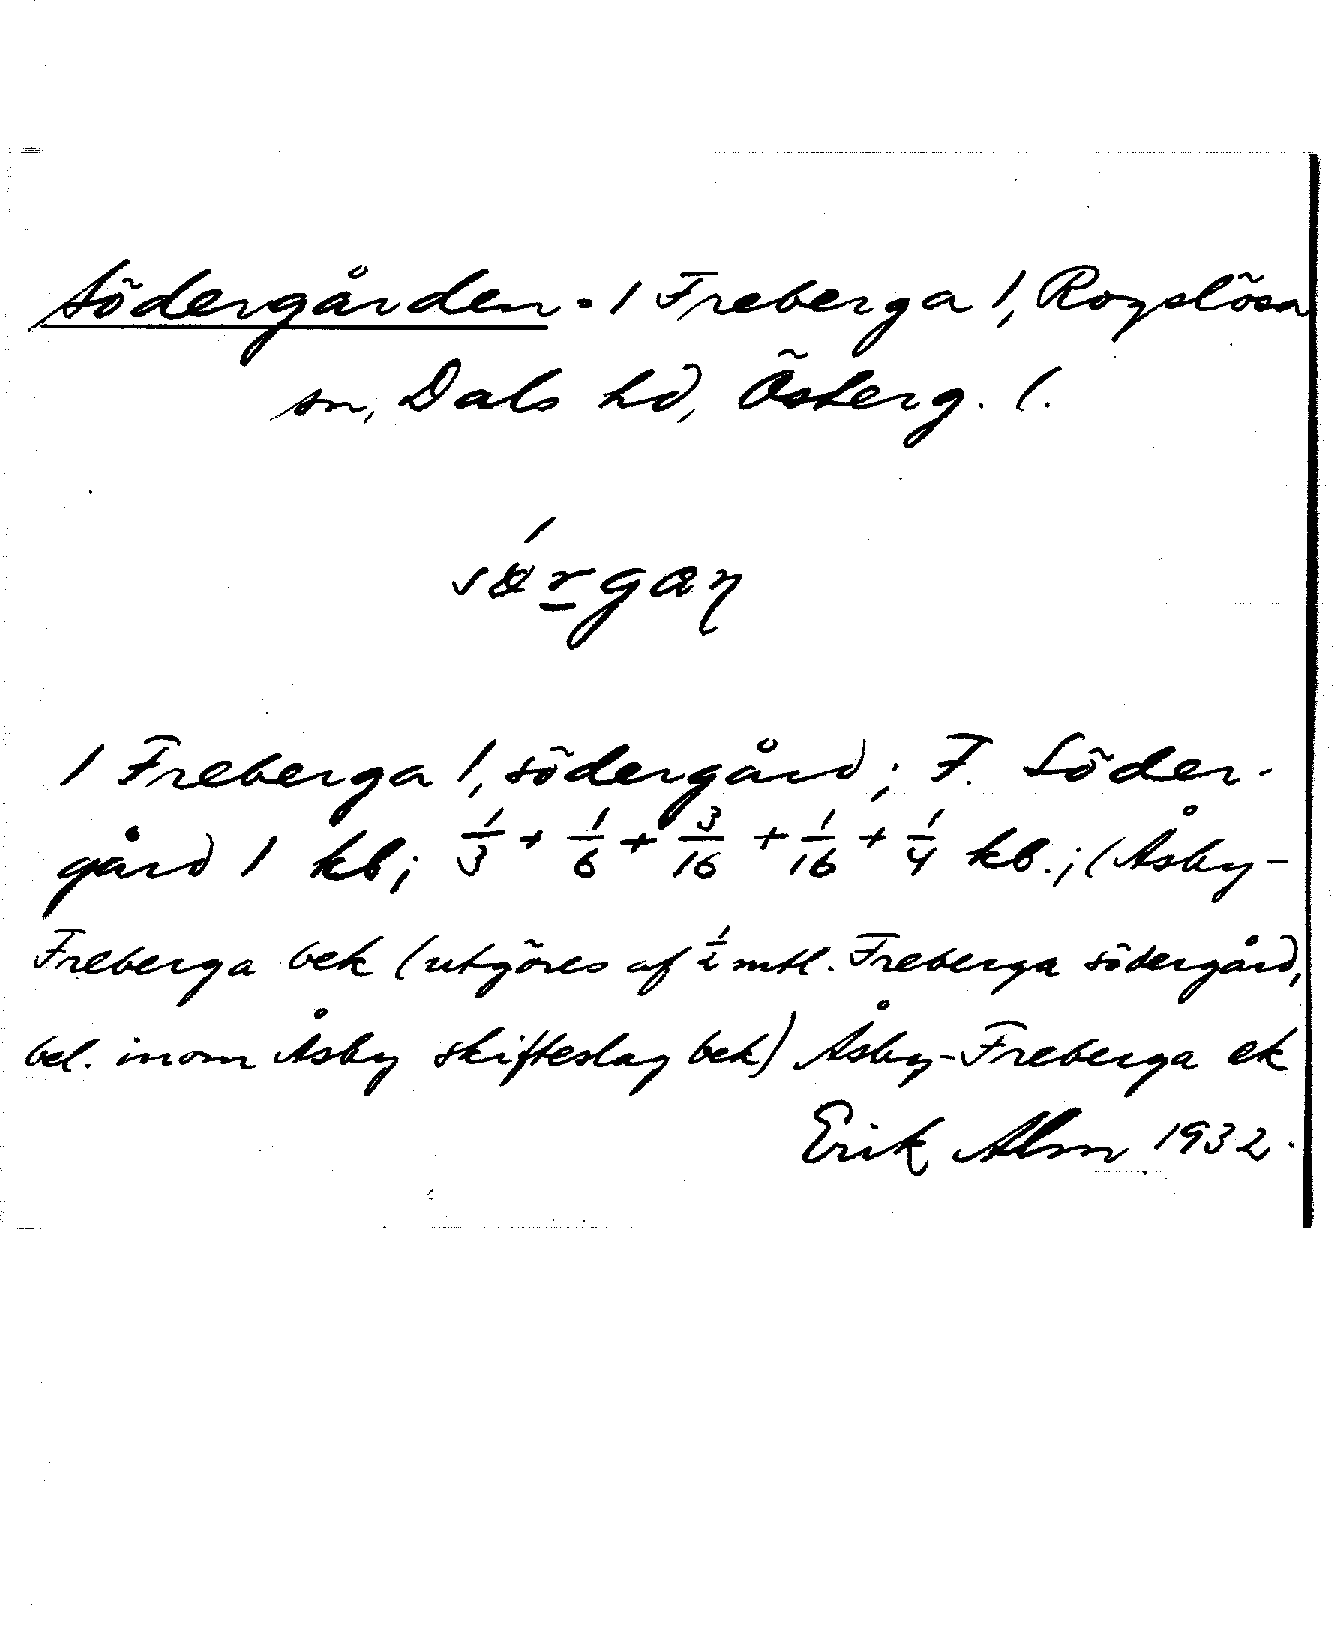 Södergården. 1 Freberga 1, Rogslösa
sn, Dals hd, Österg. l.
sø̀rgaɳ
1 Freberga 1, södergård; F. Söder-
gård 1 kb; 1/3 + 1/6 + 3/16 + 1/16 + 1/4 kb.; (Åsby-
Freberga bek (utgöres af 1/2 mtl. Freberga södergård,
bel. inom Åsby skifteslag bek) Åsby-Freberga ek
Erik Alm 1932.